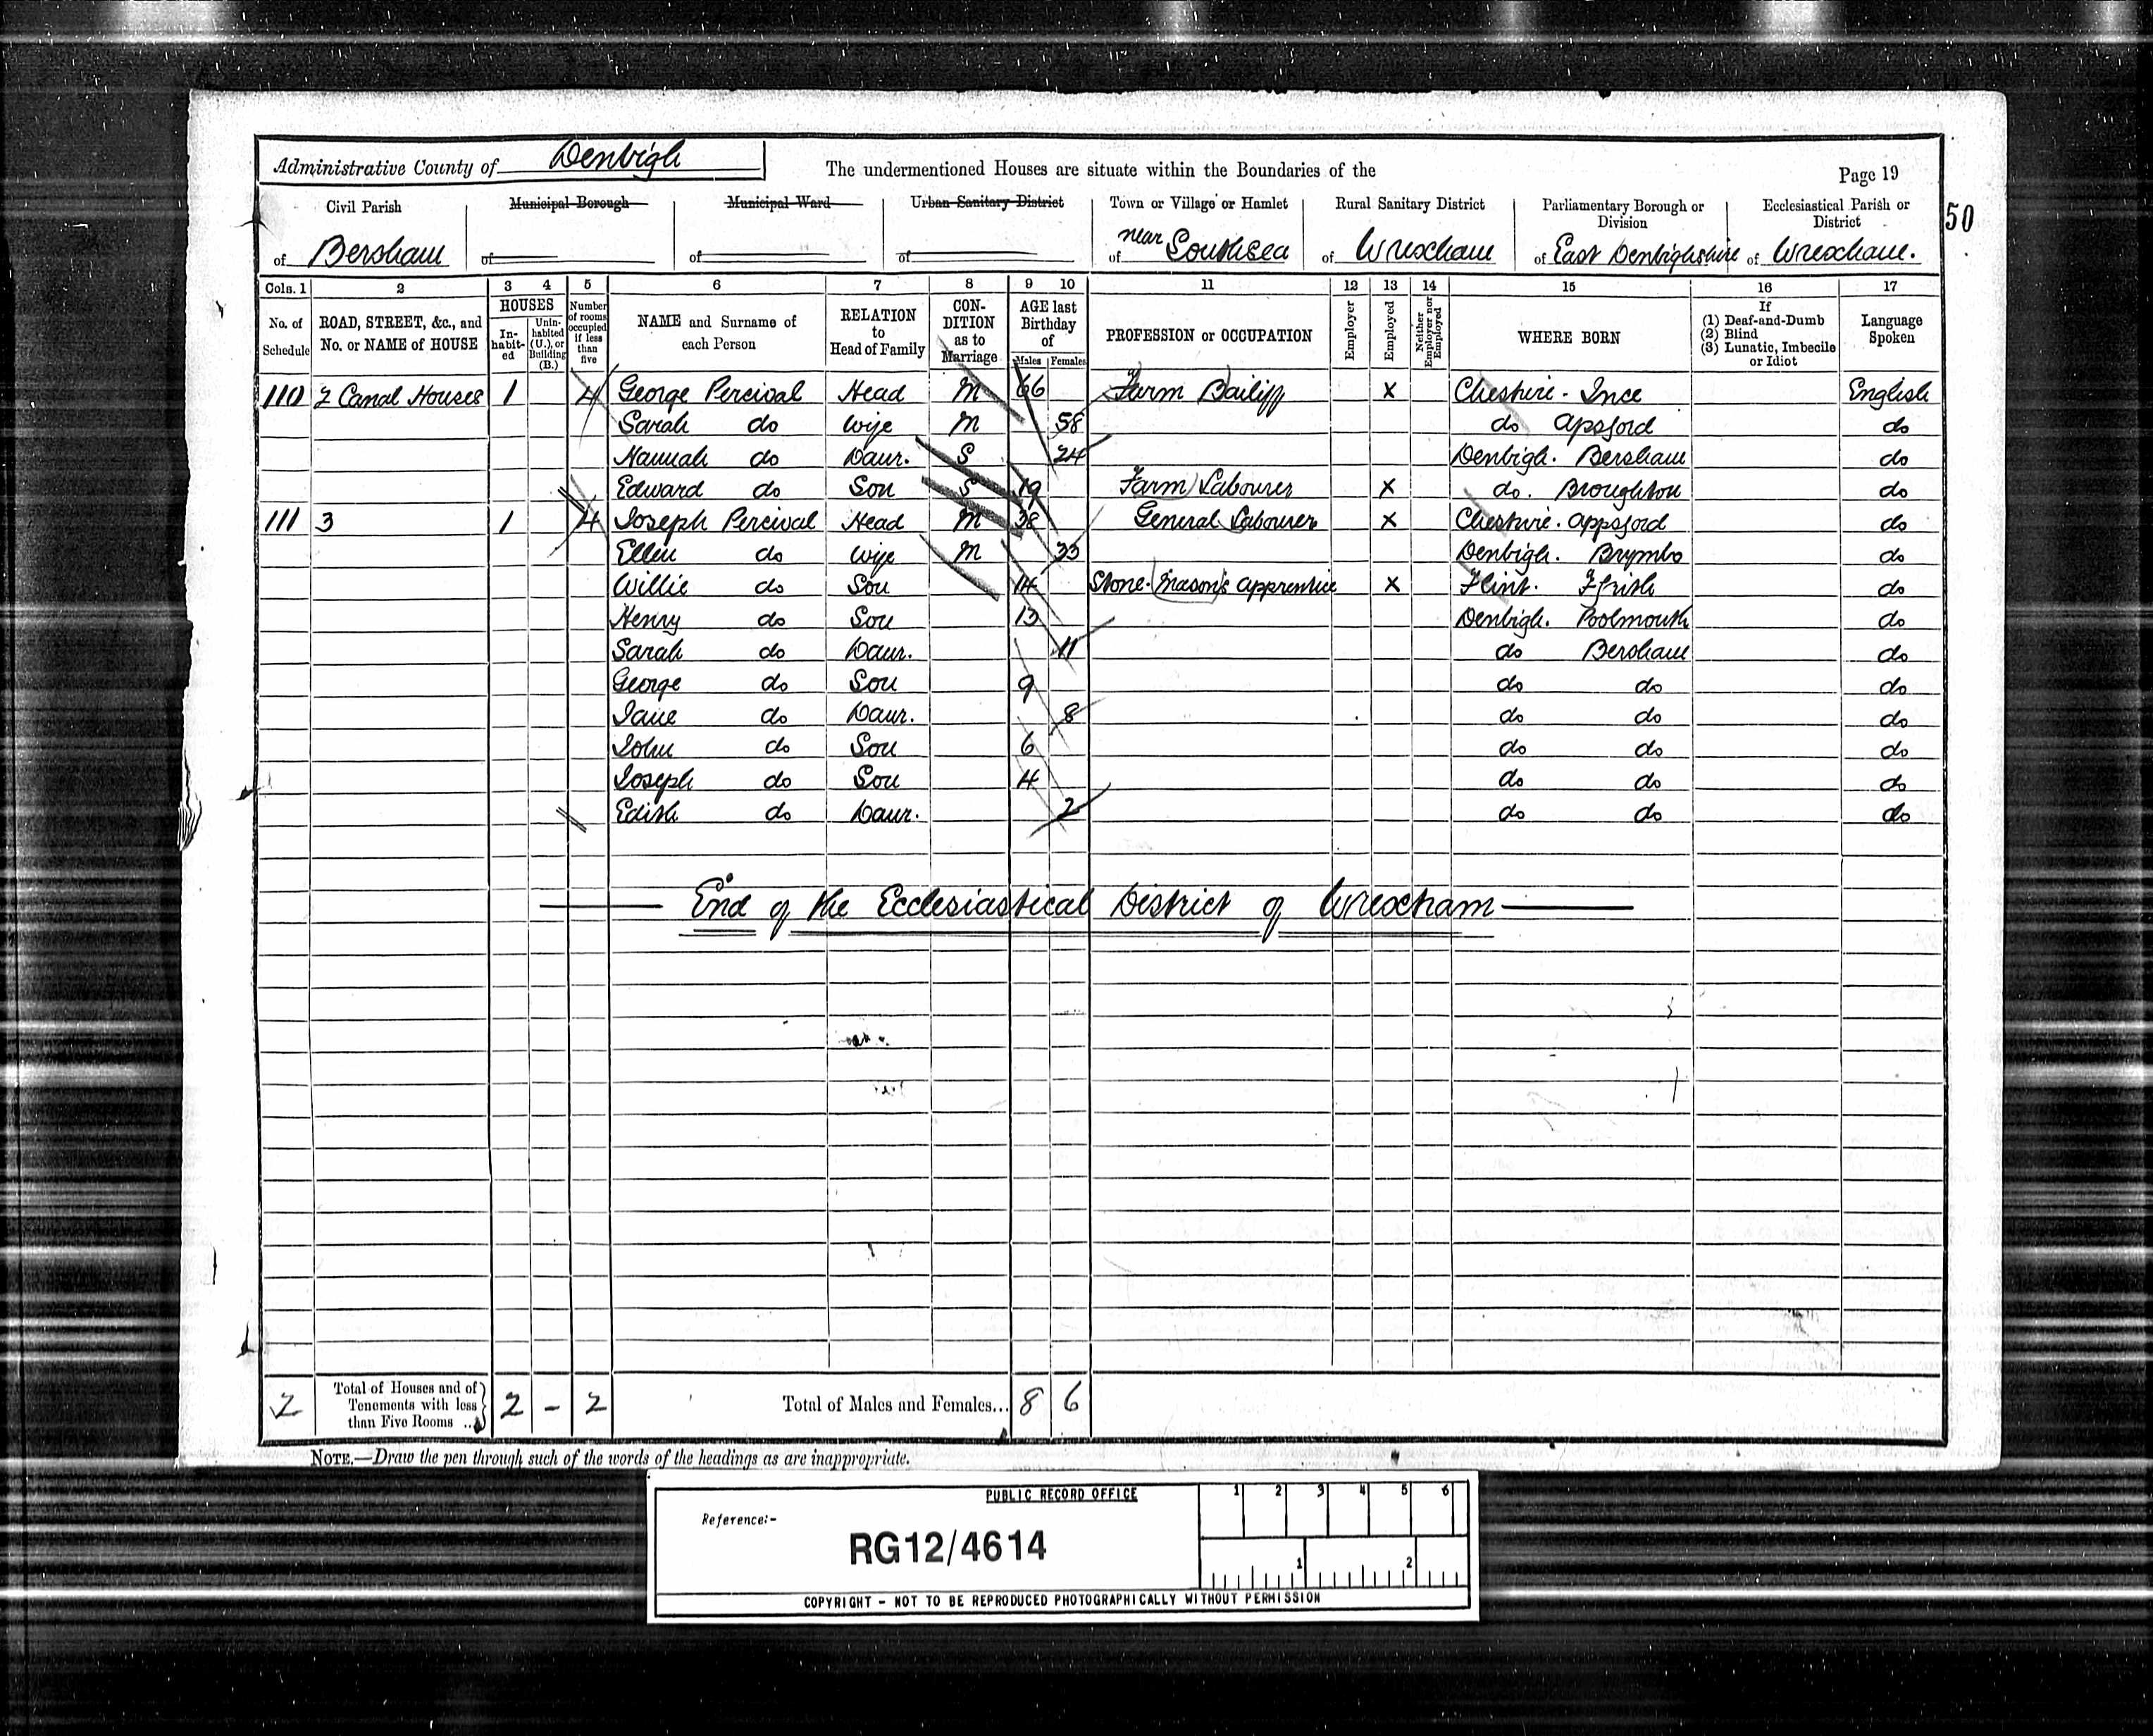 Administrative County of Denbigh
The undermentioned Houses are situate within the Boundaries of the
Page 19
50
Civil Parish of Bersham
Municipal Borough of
Municipal Ward of
Urban Sanitary District of
Town or Village or Hamlet of near Southsea
Rural Sanitary District of Wrexham
Parliamentary Borough or Division of East Denbighshire
Ecclesiastical Parish or District of Wrexham.
Cols. 1 2 3 4 5 6 7 8 9 10 11 12 13 14 15 16 17
No. of Schedule
ROAD, STREET, &c., and No. or NAME of HOUSE
HOUSES
In-habit-ed
Unin-habited (U.), or Building (B.)
Number of rooms occupied if less than five
NAME and Surname of each Person
RELATION to Head of Family
CON-DITION as to Marriage
AGE last Birthday of
Males Females
PROFESSION or OCCUPATION
Employer
Employed
Neither Employer nor Employed
WHERE BORN
If (1) Deaf-and-Dumb (2) Blind (3) Lunatic, Imbecile or Idiot
Language Spoken
110 2 Canal Houses 1 4 George Percival Head M 66 Farm Bailiff X Cheshire - Ince English
Sarah do Wife M 58 do Apsford do
Hannah do Daur. S 24 Denbigh. Bersham do
Edward do Son S 19 Farm Labourer X do. Broughton do
111 3 1 4 Joseph Percival Head M 38 General Labourer X Cheshire. Appsford do
Ellen do Wife M 33 Denbigh. Brymbo do
Willie do Son 14 Stone Mason's apprentice X Flint. Ffrith do
Henry do Son 13 Denbigh. Poolmouth do
Sarah do Daur. 11 do Bersham do
George do Son 9 do do do
Jane do Daur. 8 do do do
John do Son 6 do do do
Joseph do Son 4 do do do
Edith do Daur. 2 do do do
End of the Ecclesiastical District of Wrexham
2 Total of Houses and of Tenements with less than Five Rooms .. 2 - 2 Total of Males and Females... 8 6
NOTE.—Draw the pen through such of the words of the headings as are inappropriate.
PUBLIC RECORD OFFICE
1 2 3 4 5 6
Reference:-
RG12/4614
1 2
COPYRIGHT - NOT TO BE REPRODUCED PHOTOGRAPHICALLY WITHOUT PERMISSION